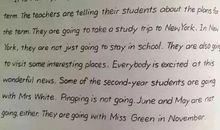 term. The teachers are telling their students about the plans for
the term. They are going to take a study trip to New York. In New
York, they are not just going to stay in school. They are also going
to visit some interesting places. Everybody is excited at this
wonderful news. Some of the second-year students are going
with Mrs White. Pingping is not going. June and May are not
going, either. They are going with Miss Green in November.